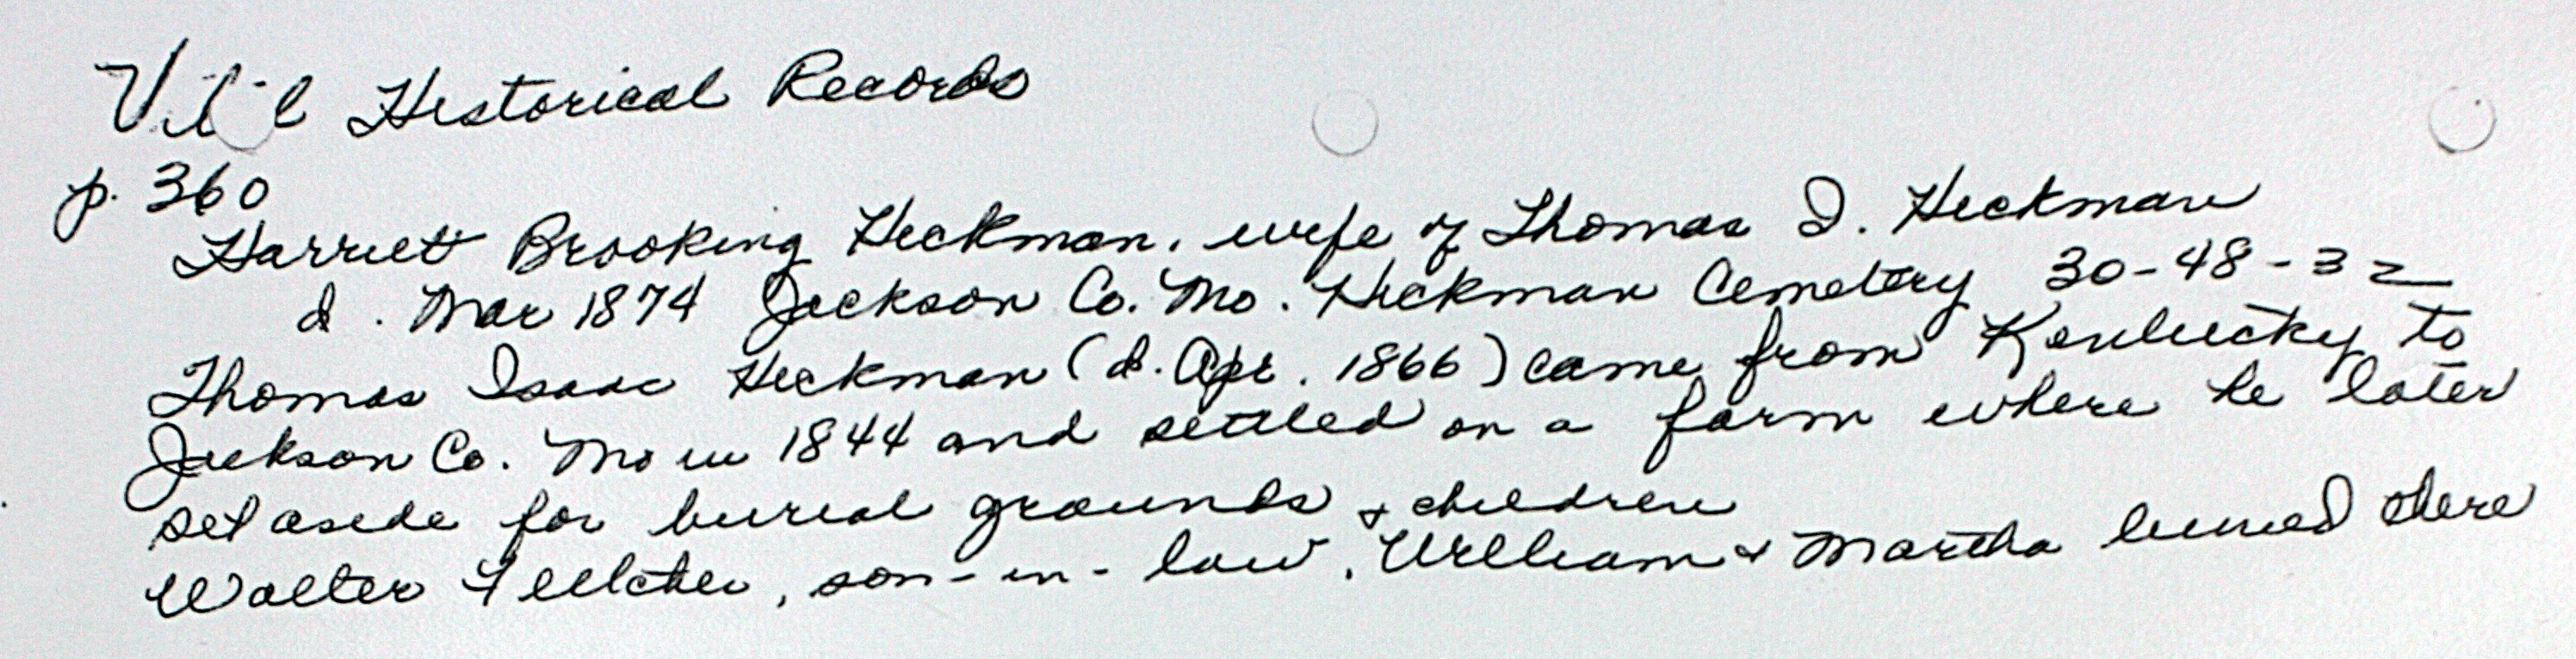 Vital Historical Records
p. 360
Harriett Brooking Hickman, wife of Thomas I. Hickman
d. Mar 1874 Jackson Co. Mo. Hickman Cemetery 30-48-32
Thomas Isaac Hickman (d. Apr. 1866) came from Kentucky to
Jackson Co. Mo in 1844 and settled on a farm where he later
set aside for burial grounds + children
Walter, son-in-law, William + Martha buried there